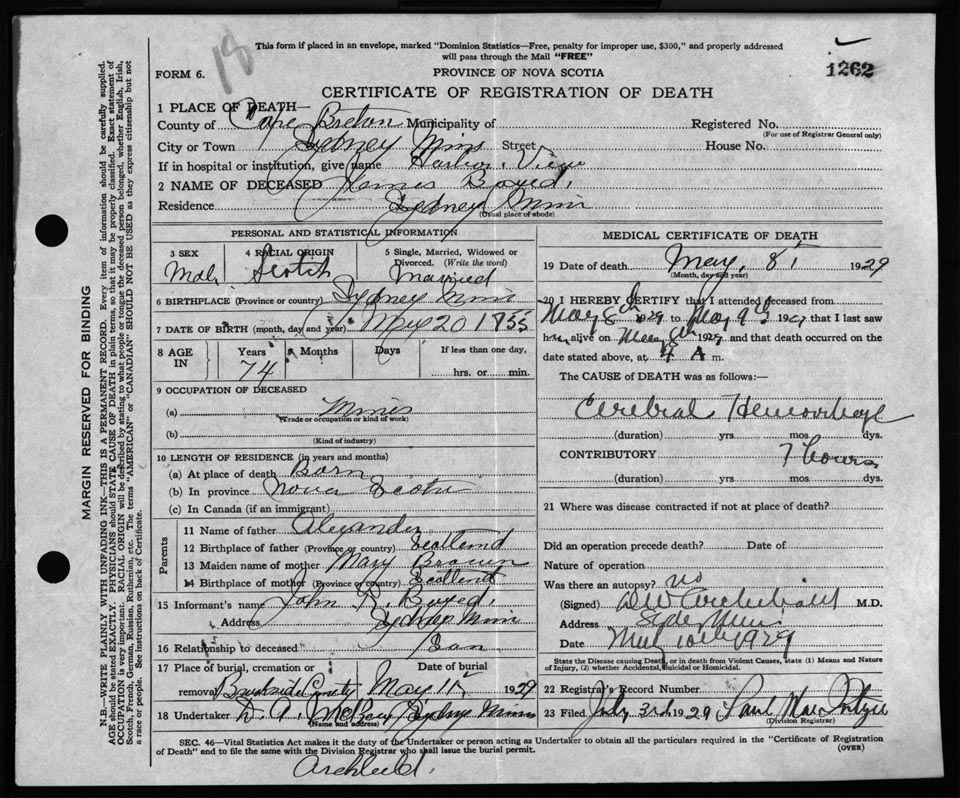 18
This form if placed in an envelope, marked "Dominion Statistics—Free, penalty for improper use, $300," and properly addressed
will pass through the Mail "FREE"
1262
FORM 6.
PROVINCE OF NOVA SCOTIA
CERTIFICATE OF REGISTRATION OF DEATH
MARGIN RESERVED FOR BINDING
N.B.—WRITE PLAINLY WITH UNFADING INK—THIS IS A PERMANENT RECORD. Every item of information should be carefully supplied.
AGE should be stated EXACTLY. PHYSICIANS should STATE CAUSE OF DEATH in plain terms, so that it may be properly classified. Exact statement of
OCCUPATION is very important. RACIAL ORIGIN will be described by stating to what people or tongue the deceased person belonged, whether English, Irish,
Scotch, French, German, Russian, Ruthenian, etc. The terms "AMERICAN" or "CANADIAN" SHOULD NOT BE USED as they express citizenship but not
a race or people. See instructions on back of Certificate.
1 PLACE OF DEATH—
County of Cape Breton Municipality of Registered No.
(For use of Registrar General only)
City or Town Sydney Mines Street House No.
If in hospital or institution, give name Harbor View
2 NAME OF DECEASED James Boyed
Residence Sydney Mines
(Usual place of abode)
PERSONAL AND STATISTICAL INFORMATION
3 SEX Male
4 RACIAL ORIGIN Scotch
5 Single, Married, Widowed or Divorced. (Write the word) Married
6 BIRTHPLACE (Province or country) Sydney Mines
7 DATE OF BIRTH (month, day and year) 20 1855
8 AGE IN Years Months Days If less than one day,
74 hrs. or min.
9 OCCUPATION OF DECEASED
(a)
(Trade or occupation or kind of work)
(b)
(Kind of industry)
10 LENGTH OF RESIDENCE (in years and months)
(a) At place of death Born
(b) In province Nova Scotia
(c) In Canada (if an immigrant)
Parents
11 Name of father Alexander
12 Birthplace of father (Province or country) Scotland
13 Maiden name of mother Mary Brown
14 Birthplace of mother (Province or country) Scotland
15 Informant's name John R. Boyed
Address Sydney Mines
16 Relationship to deceased Son
17 Place of burial, cremation or removal
Date of burial
May 11 1929
18 Undertaker D. A. Sydney Mines
(Name and address)
MEDICAL CERTIFICATE OF DEATH
19 Date of death May, 8th 1929
(Month, day and year)
20 I HEREBY CERTIFY that I attended deceased from
May 8th 1929 to May 9th 192 that I last saw
him alive on May 8th 1929 and that death occurred on the
date stated above, at 4 A m.
The CAUSE OF DEATH was as follows:—
Cerebral Hemorrhage
(duration) yrs mos dys.
CONTRIBUTORY 7 hours
(duration) yrs. mos. dys.
21 Where was disease contracted if not at place of death?
Did an operation precede death? Date of
Nature of operation
Was there an autopsy? no
(Signed) Archibald M.D.
Address Syd Mines
Date May 10th 1929
State the Disease causing Death, or in death from Violent Causes, state (1) Means and Nature
of Injury, (2) whether Accidental, Suicidal or Homicidal.
22 Registrar's Record Number
23 Filed July 3rd 1929
(Division Registrar)
SEC. 46—Vital Statistics Act makes it the duty of the Undertaker or person acting as Undertaker to obtain all the particulars required in the "Certificate of Registration
of Death" and to file the same with the Division Registrar who shall issue the burial permit.
(OVER)